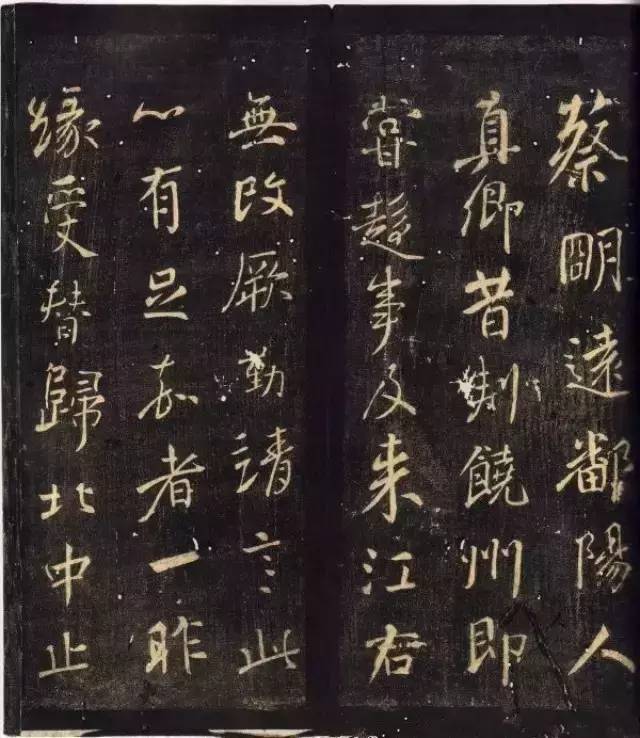 蔡朙遠鄱陽人
真卿昔刺饒州即
嘗趍事及来江右
無改厥勤靖言此
心有足嘉者一昨
緣受替歸北中止